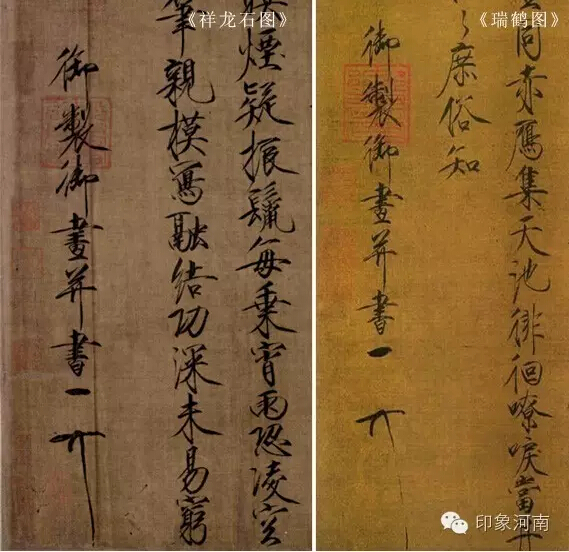 《祥龙石图》
煙疑振鬣每乘宵雨恐凌空
筆親模寫融結功深未易窮
御製御畫并書
《瑞鹤图》
同赤鴈集天池徘徊嘹唳當
庶俗知
御製御畫并書
印象河南